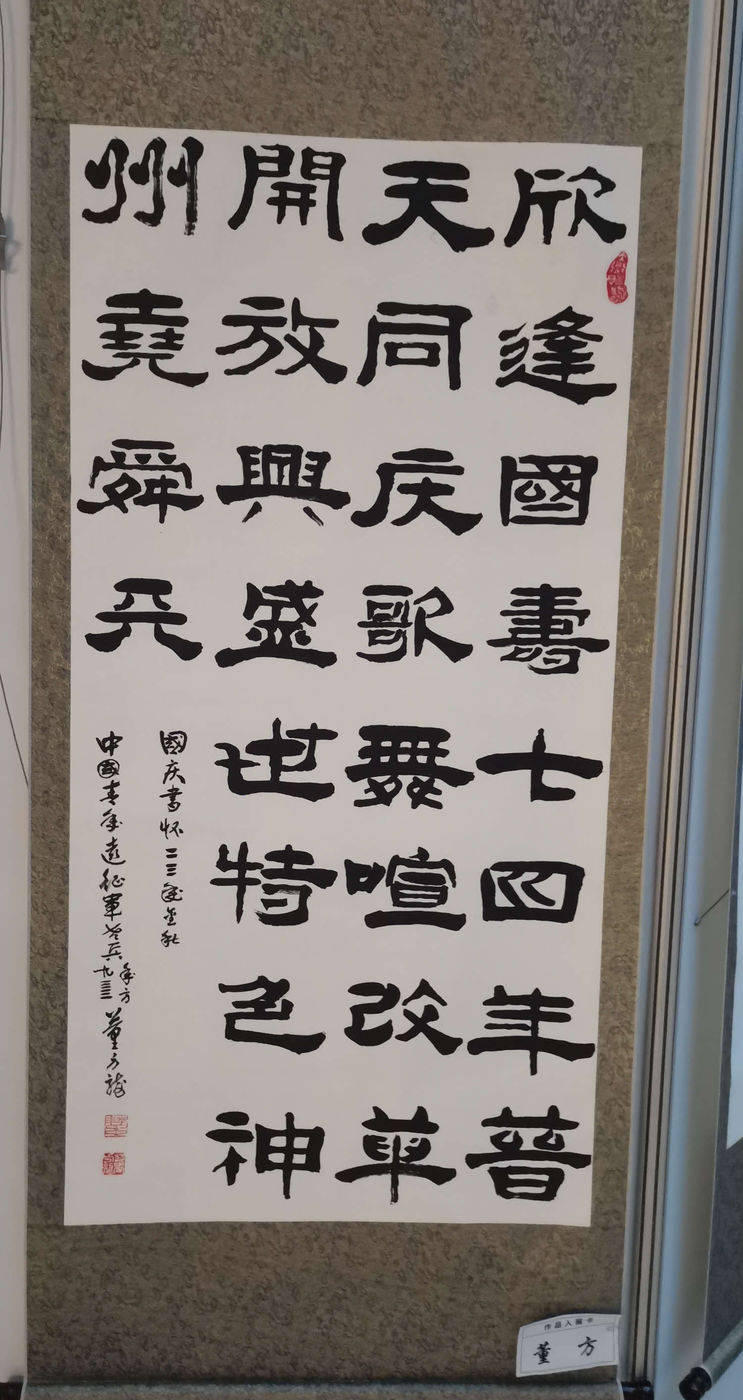 欣逢國壽七四年普
天同庆歌舞喧改革
開放興盛世特色神
州堯舜天
國庆書怀二三年金秋
中國青年遠征軍老兵年方九三董方
作品入展卡
董方